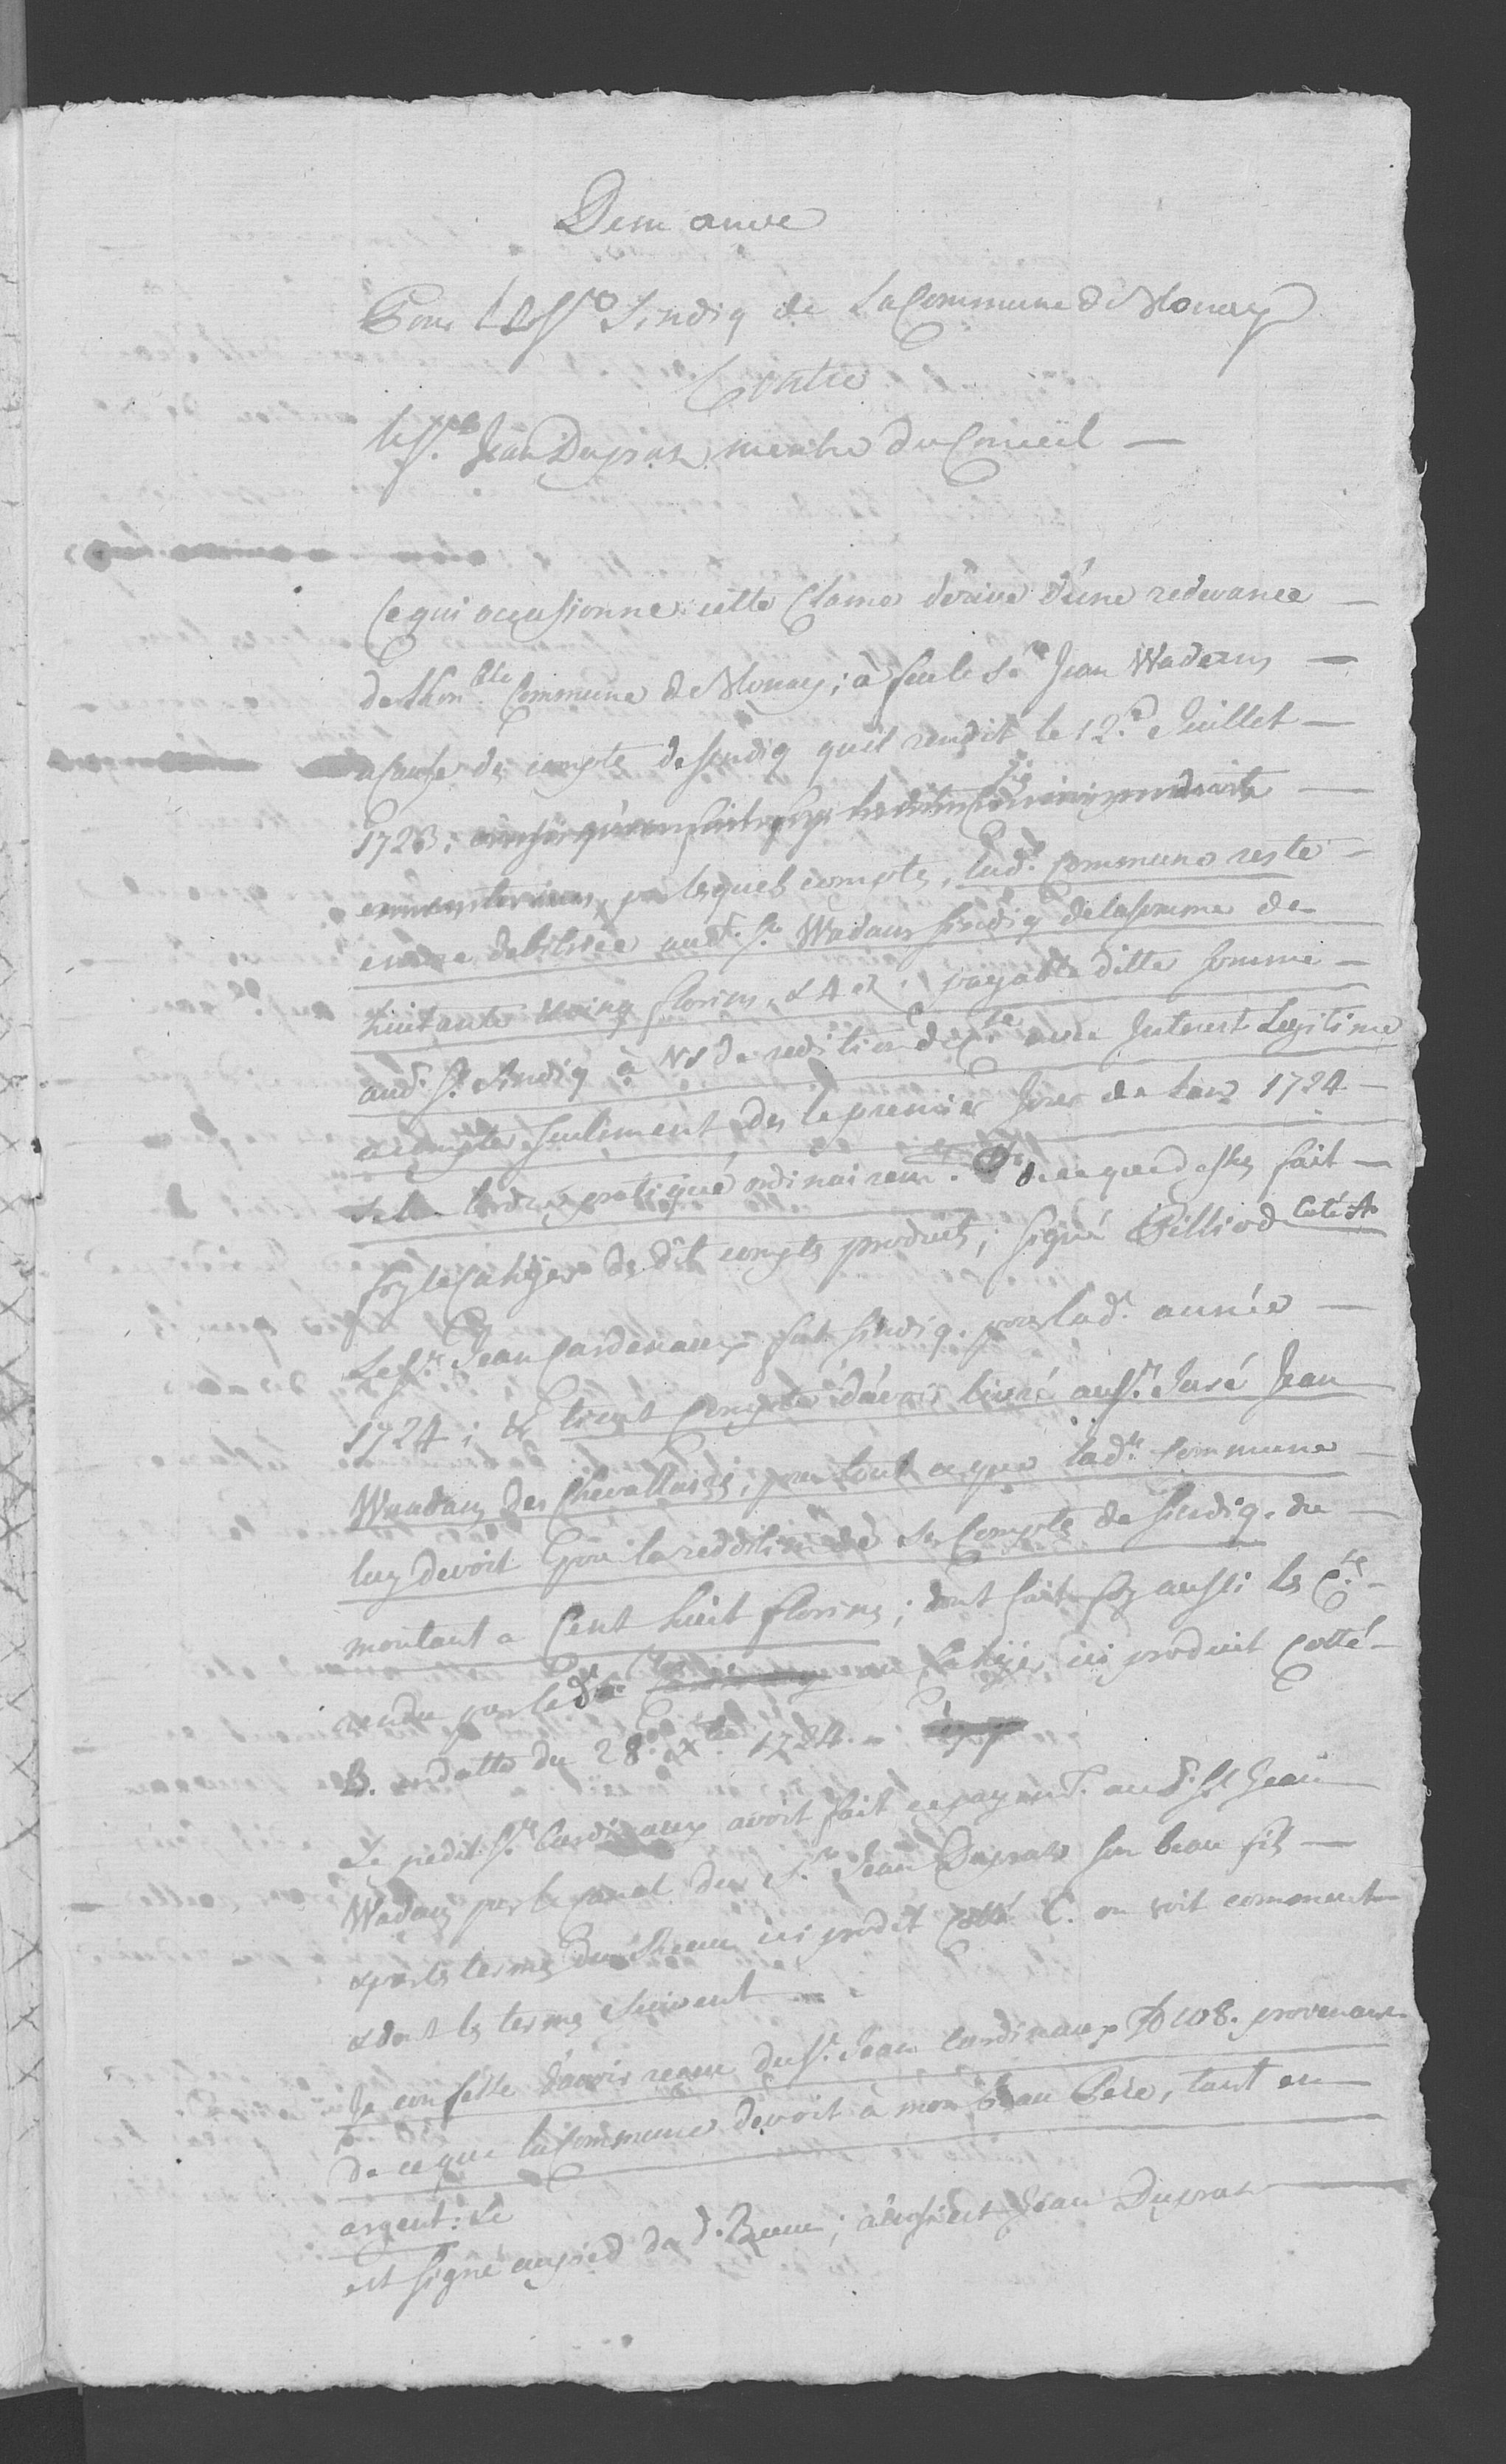 Demande
Pour Sindiq de La Commune de Blonay
Contre
Le Sr. Jean Dupraz membre du Conseil —
Ce qui occasionne cette Clame dérive d'une redevance —
de Lhon.ble Commune de Blonay; à feu le Sr. Jean Wadens —
a Cause de compte de Sindiq quil rendit le 12.e Juillet —
1723;
par lesquels compte, lad.e Commune reste —
debitrice aud.t Sr. Wadens Sindiq de la somme de
huitante cinq florins & 4 payable ditte somme —
aud.t Sr. Sindiq à de redition de avec Interest Legitime
a compter seulement des le premier Jour de Lan 1724 —
pratiqué ordinairem.t. de ce que dessus fait —
foy le Cahyer de dit compte produit; signé Pilliod Coté A
Le Sr. Jean Cardinaux fut Sindiq. pour lad.e année —
1724; & tient Compte d'avoir livré au Sr. Juré Jean
Wuadens des Chevallaires, pour tout ce que lad.te Commune —
luy devoit pour la reddition de Ses Compte de Sindiq. du —
montant a Cent huit florins; dont fait foy aussi les C.te —
rendu par le d.t au Cahyer ici produit Cotté —
B. en datte du 28.e Xbre 1724.
Le predit Sr. Cardinaux avoit fait ce payem.t. aud.t Sr. Jean
Wadens par le Canal du Sr. Jean Dupraz son beau fils —
& par les termes du Receu ici prodit Cotté C. on voit comment
& dont les termes Suivent
Je confesse d'avoir receu du Sr. Jean Cardinaux 108. provenant
de ce que la Commune devoit à mon Beau Père, tant en
argent: &c
est signé au pied du d.t Receu; Jean Dupraz